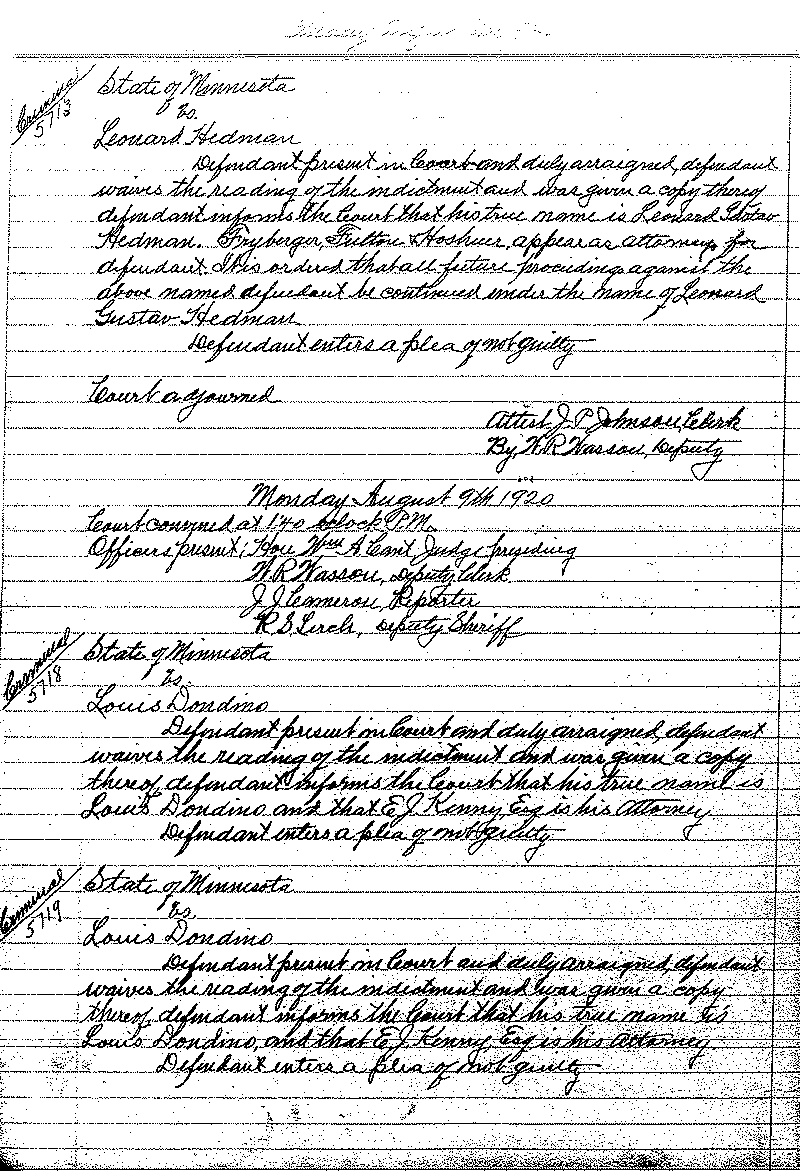 Criminal
5713
State of Minnesota
vs.
Leonard Hedman
Defendant present in Court and duly arraigned, defendant
waives the reading of the indictment and was given a copy thereof
defendant informs the Court that his true name is Leonard Gustav
Hedman. Fryberger, Fulton & Hoshour, appear as attorneys for
defendant. It is ordered that all future proceding against the
above named defendant be continued under the name of Leonard
Gustav Hedman
Defendant enters a plea of not guilty
Court adjourned
Attest J. P. Johnson, Clerk
By, W R Wasson, Deputy
Monday August 9th 1920
Court convened at 140 oclock P.M.
Officers present; Hon Wm A Cant, Judge presiding
W. R Wasson, Deputy Clerk
J. J. Cameron, Reporter
R. S. Lerch, Deputy Sheriff
Criminal
5718
State of Minnesota
vs.
Louis Dondino
Defendant present in Court and duly arraigned, defendant
waives the reading of the indictment and was given a copy
thereof, defendant informs the Court that his true name is
Louis Dondino and that E. J. Kenny Esq is his Attorney
Defendant enters a plea of not guilty
Criminal
5719
State of Minnesota
vs.
Louis Dondino
Defendant present in Court and duly arraigned, defendant
waives the reading of the indictment and was given a copy
thereof, defendant informs the Court that his true name is
Louis Dondino, and that E. J. Kenny Esq is his Attorney
Defendant enters a plea of not guilty